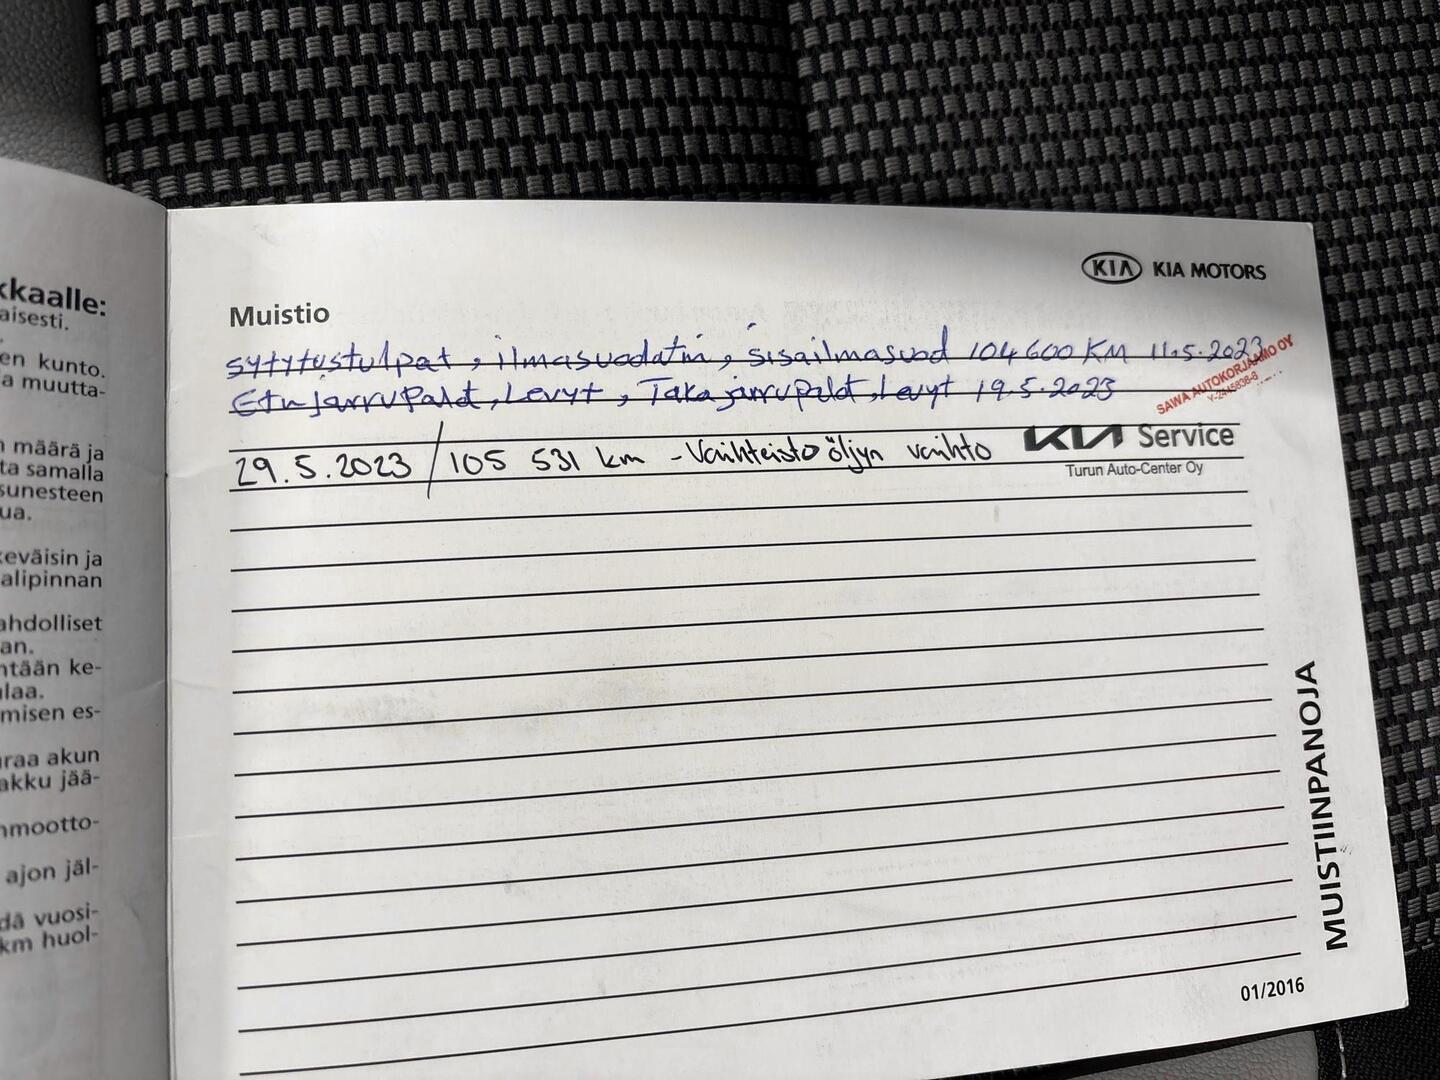 kkaalle:
aisesti.
en kunto.
a muutta-
n määrä ja
ta samalla
sunesteen
ua.
keväisin ja
alipinnan
ahdolliset
an.
ntään ke-
ulaa.
misen es-
uraa akun
akku jää-
nmootto-
ajon jäl-
dä vuosi-
km huol-
KIA KIA MOTORS
Muistio
sytytystulpat, ilmasuodatin, sisailmasuod 104600 KM 11.5.2023
Etujarrupalat, Levyt, Takajarrupalat, Levyt 19.5.2023
SAWA AUTOKORJAAMO OY
29.5.2023 / 105 531 km - Vaihteistoöljyn vaihto KIA Service
Turun Auto-Center Oy
MUISTIINPANOJA
01/2016